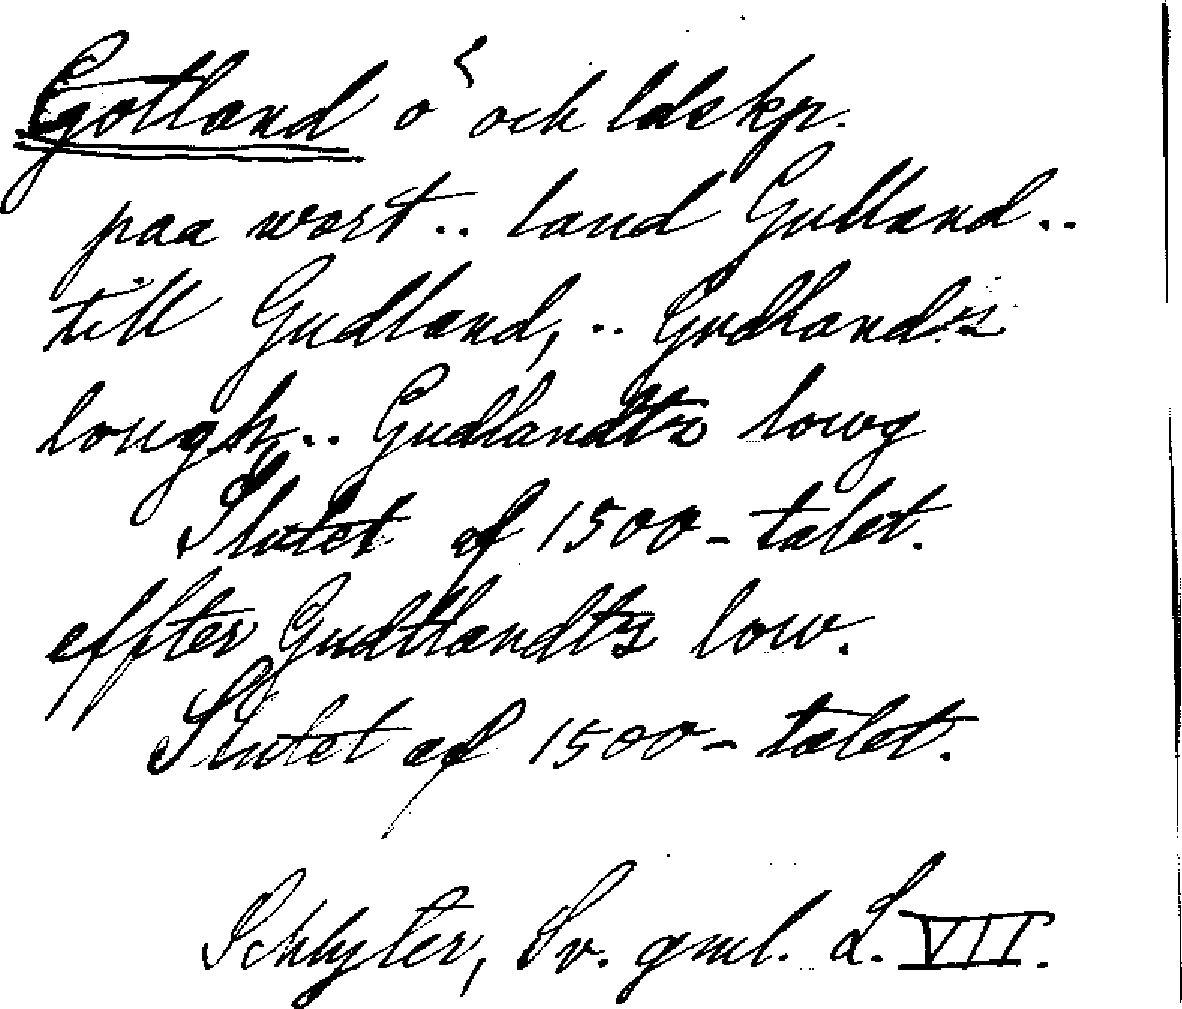 Gotland ö och ldskp.
paa wort .. land Gulland ..
till Gudland, .. Gudlandz
lough .. Gudlandtz lowg
Slutet af 1500-talet.
effter Gudtlandtz low.
Slutet af 1500-talet.
Schlyter, Sv. gml. L. VII.